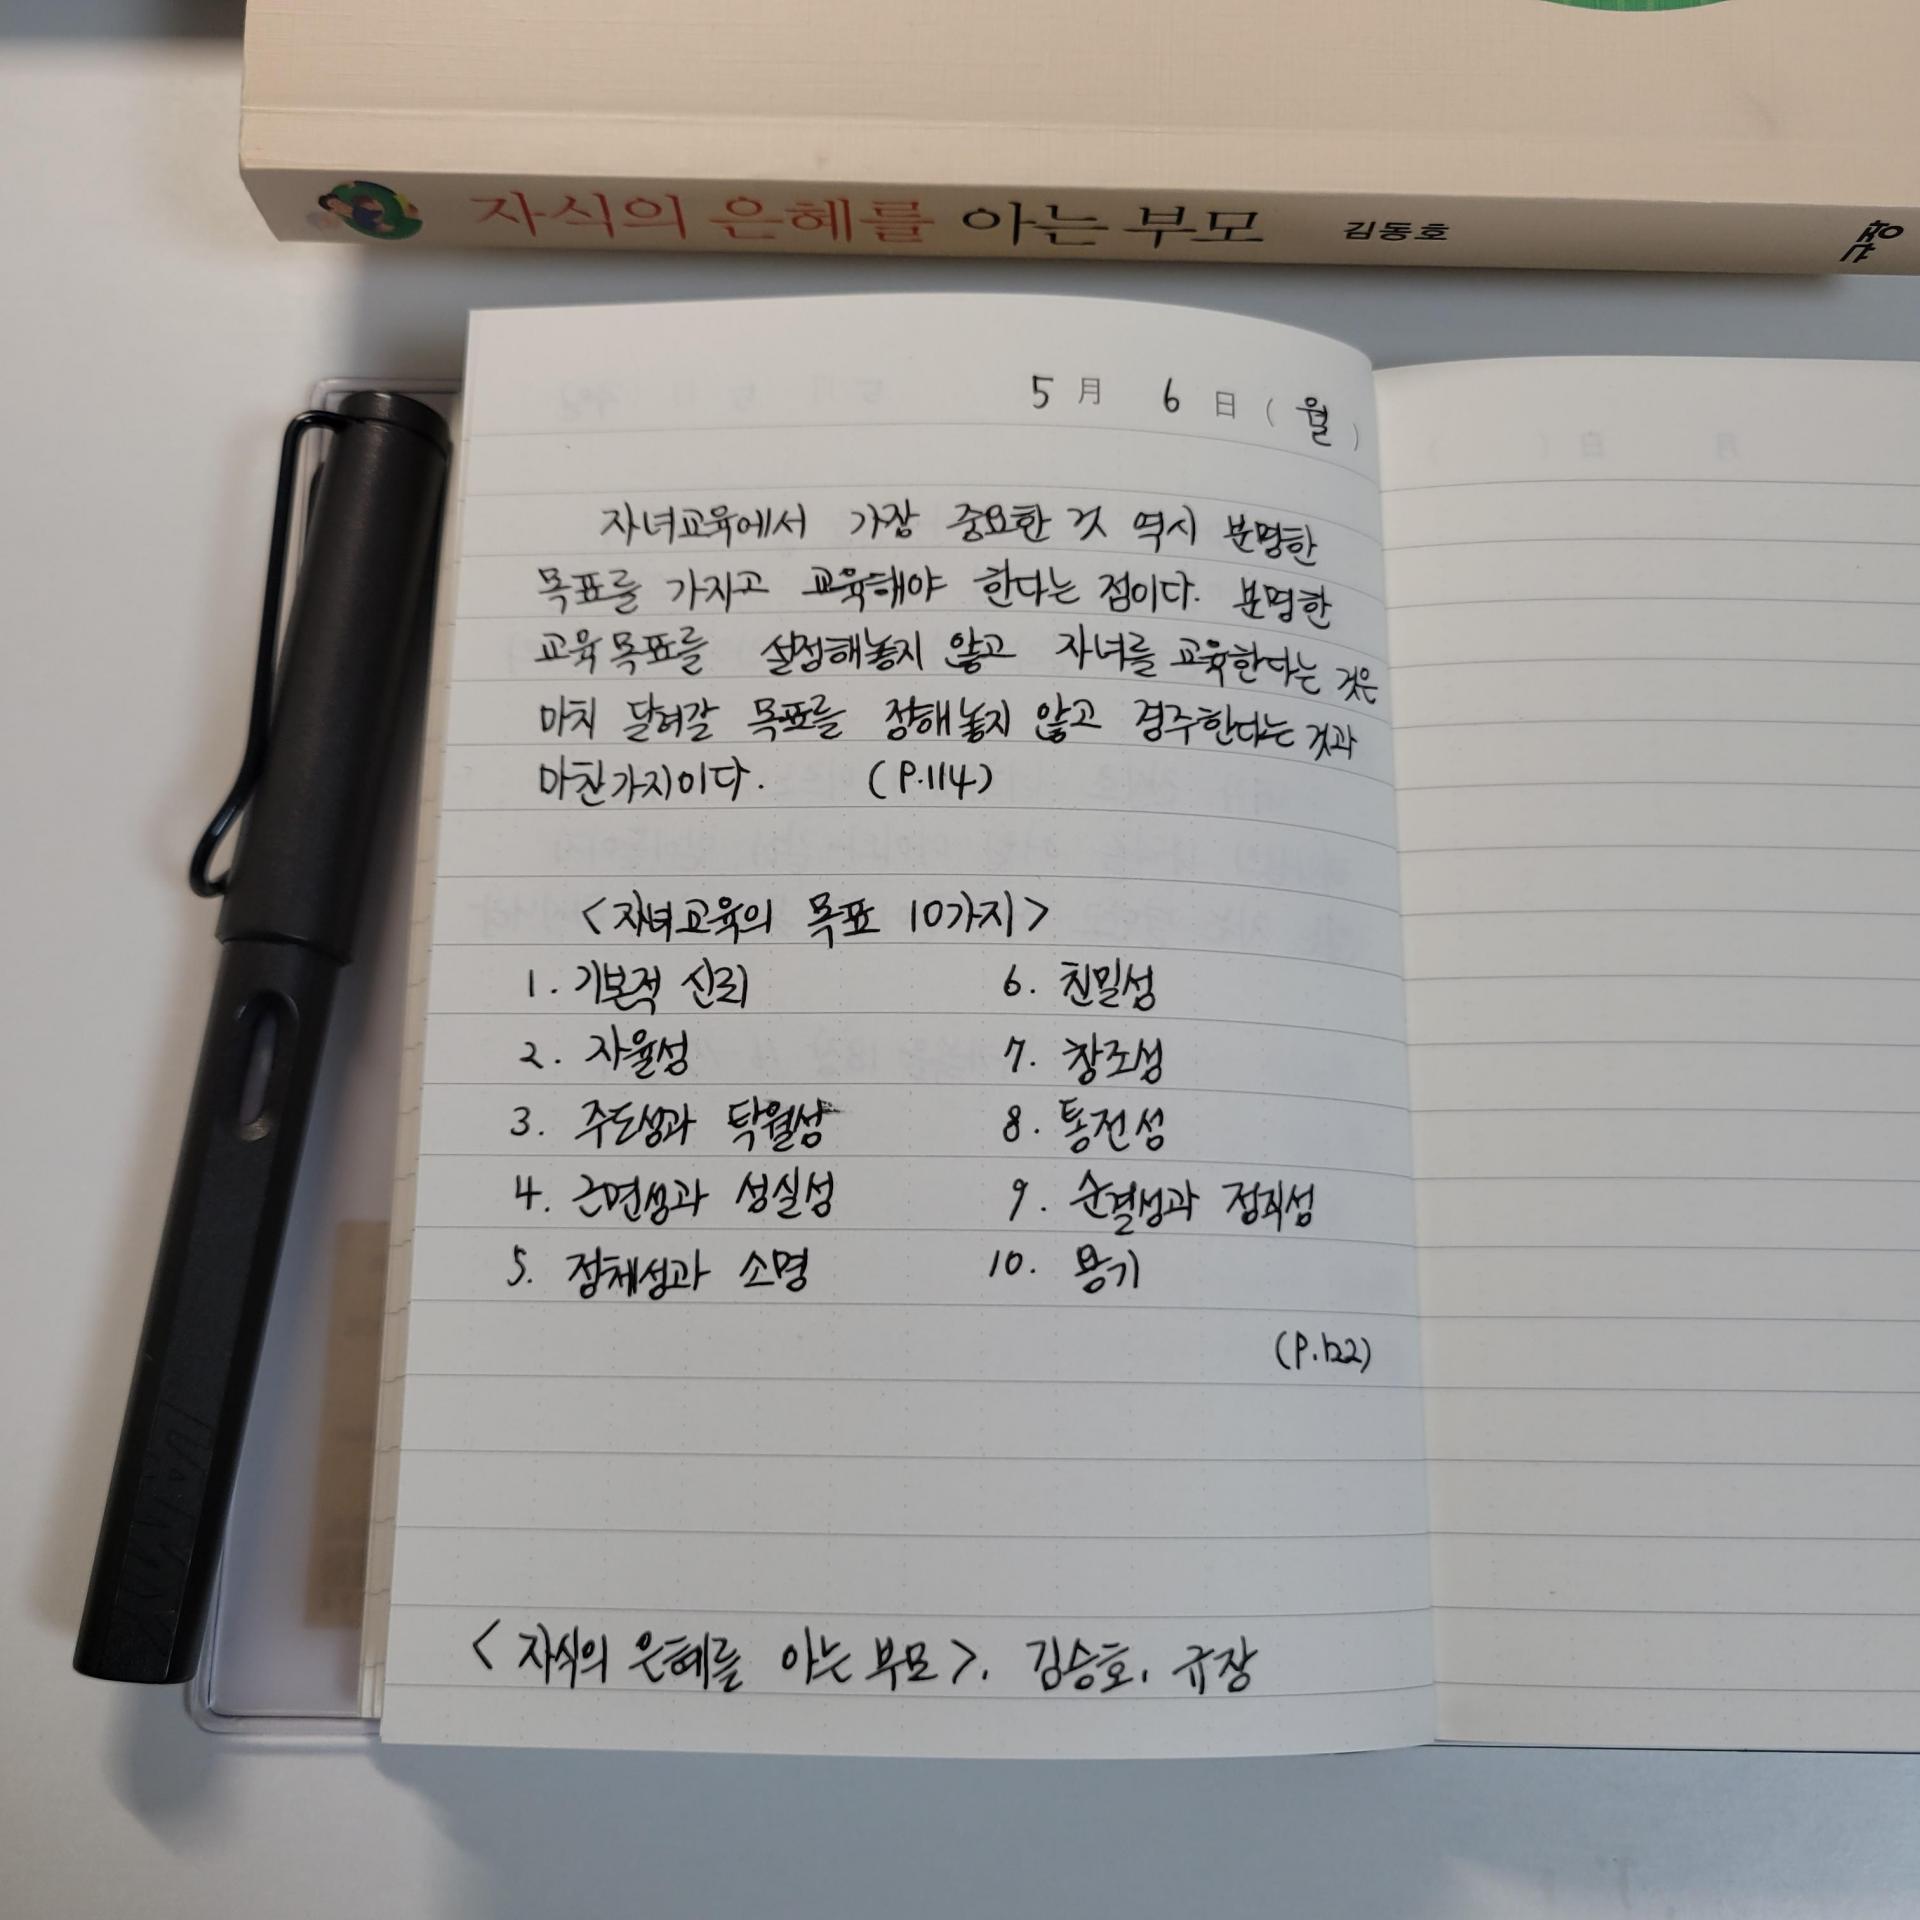 자식의 은혜를 아는 부모 김동호 규장
5月 6日 (월)
자녀교육에서 가장 중요한 것 역시 분명한
목표를 가지고 교육해야 한다는 점이다. 분명한
교육목표를 설정해놓지 않고 자녀를 교육한다는 것은
마치 달려갈 목표를 정해놓지 않고 경주한다는 것과
마찬가지이다. (P.114)
<자녀교육의 목표 10가지>
1. 기본적 신뢰
6. 친밀성
2. 자율성
7. 창조성
3. 주도성과 탁월성
8. 통전성
4. 근면성과 성실성
9. 순결성과 정직성
5. 정체성과 소명
10. 용기
(P.122)
<자식의 은혜를 아는 부모>, 김승호, 규장
LAMY